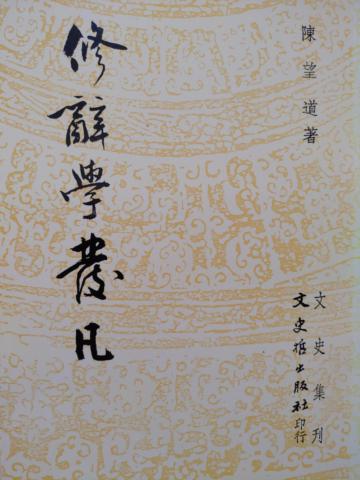 陳望道著
修辭學發凡
文史集刊
文史哲出版社印行